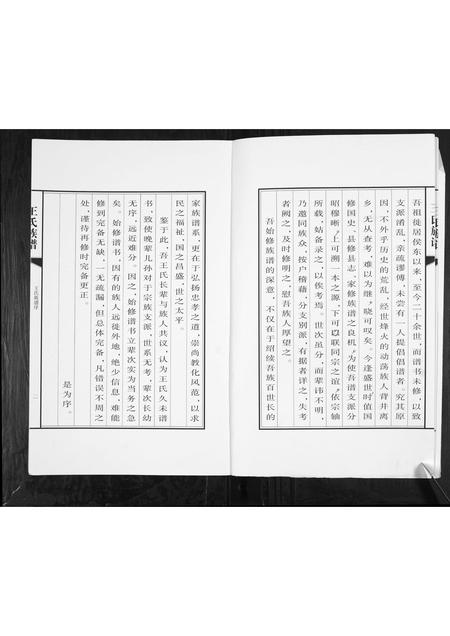 吾祖徙居侯东以来，至今二十余世，而谱书未修，以致
支派淆乱，亲疏谬傅，未尝有一人提倡谱者。究其原
因，不外乎历史的荒乱，经世烽火的动荡族人背井离
乡，无从查考，难以为继，晓可叹矣。今逢盛世，时值国
修国史，县修县志，家修族谱之良机，为使吾谱支派分
昭穆晰，上可溯一本之源，下可以联同宗之谊，依宗轴
所载，姑备录之，以俟考焉。世次虽分，而辈讳不明，
乃邀同族众，按户稽藉，分支别派，有据者详之，失考
者阙之，及时修明之，慰吾族人厚望之。
吾始修族谱的深意，不仅在于绍续吾族百世长的
王氏族谱
家族谱系，更在于弘扬忠孝之道，崇尚教化风范，以求
民之福祉，国之昌盛，世之太平。
鉴于此，吾王氏长辈与族人共议，认为王氏久未谱
书，致使晚辈儿孙对于宗族支派，世系无考，辈次长幼
无序，远近难分。因之，始修谱书立辈次实为当务之急
矣。始修谱书，因有的族人远徙外地，绝少信息，难能
修到完备无缺，一无疏漏，但总体完备，凡错误不周之
处，谨待再修时完备更正。
是为序。
王氏族谱
王氏族谱序